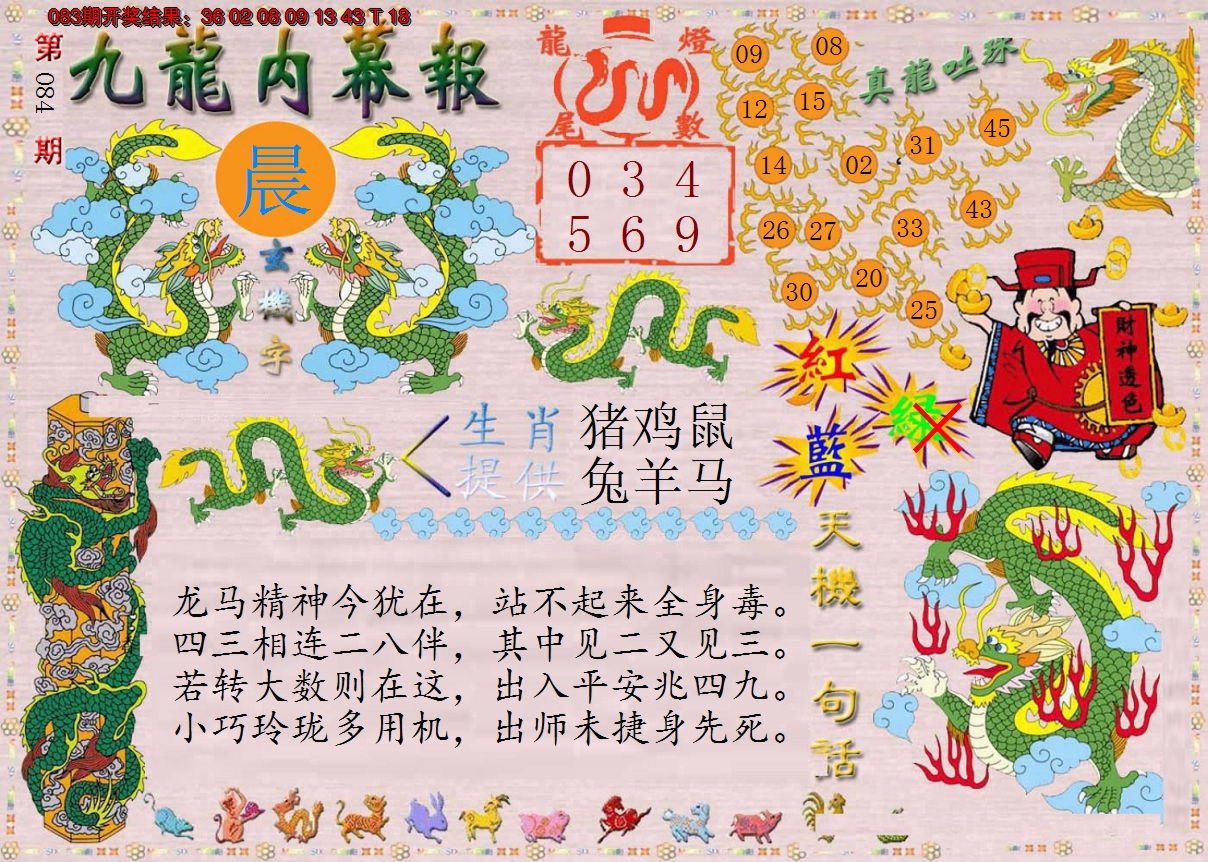 083期开奖结果：36 02 06 09 13 43 T 18
第084期
九龍内幕報
晨
玄機字
龍燈尾數
0 3 4
5 6 9
真龍吐珠
09 08
12 15
31 45
14 02
43
26 27 33
20
30 25
紅
綠
藍
財神透色
生肖提供
猪鸡鼠
兔羊马
天機一句话
龙马精神今犹在，站不起来全身毒。
四三相连二八伴，其中见二又见三。
若转大数则在这，出入平安兆四九。
小巧玲珑多用机，出师未捷身先死。